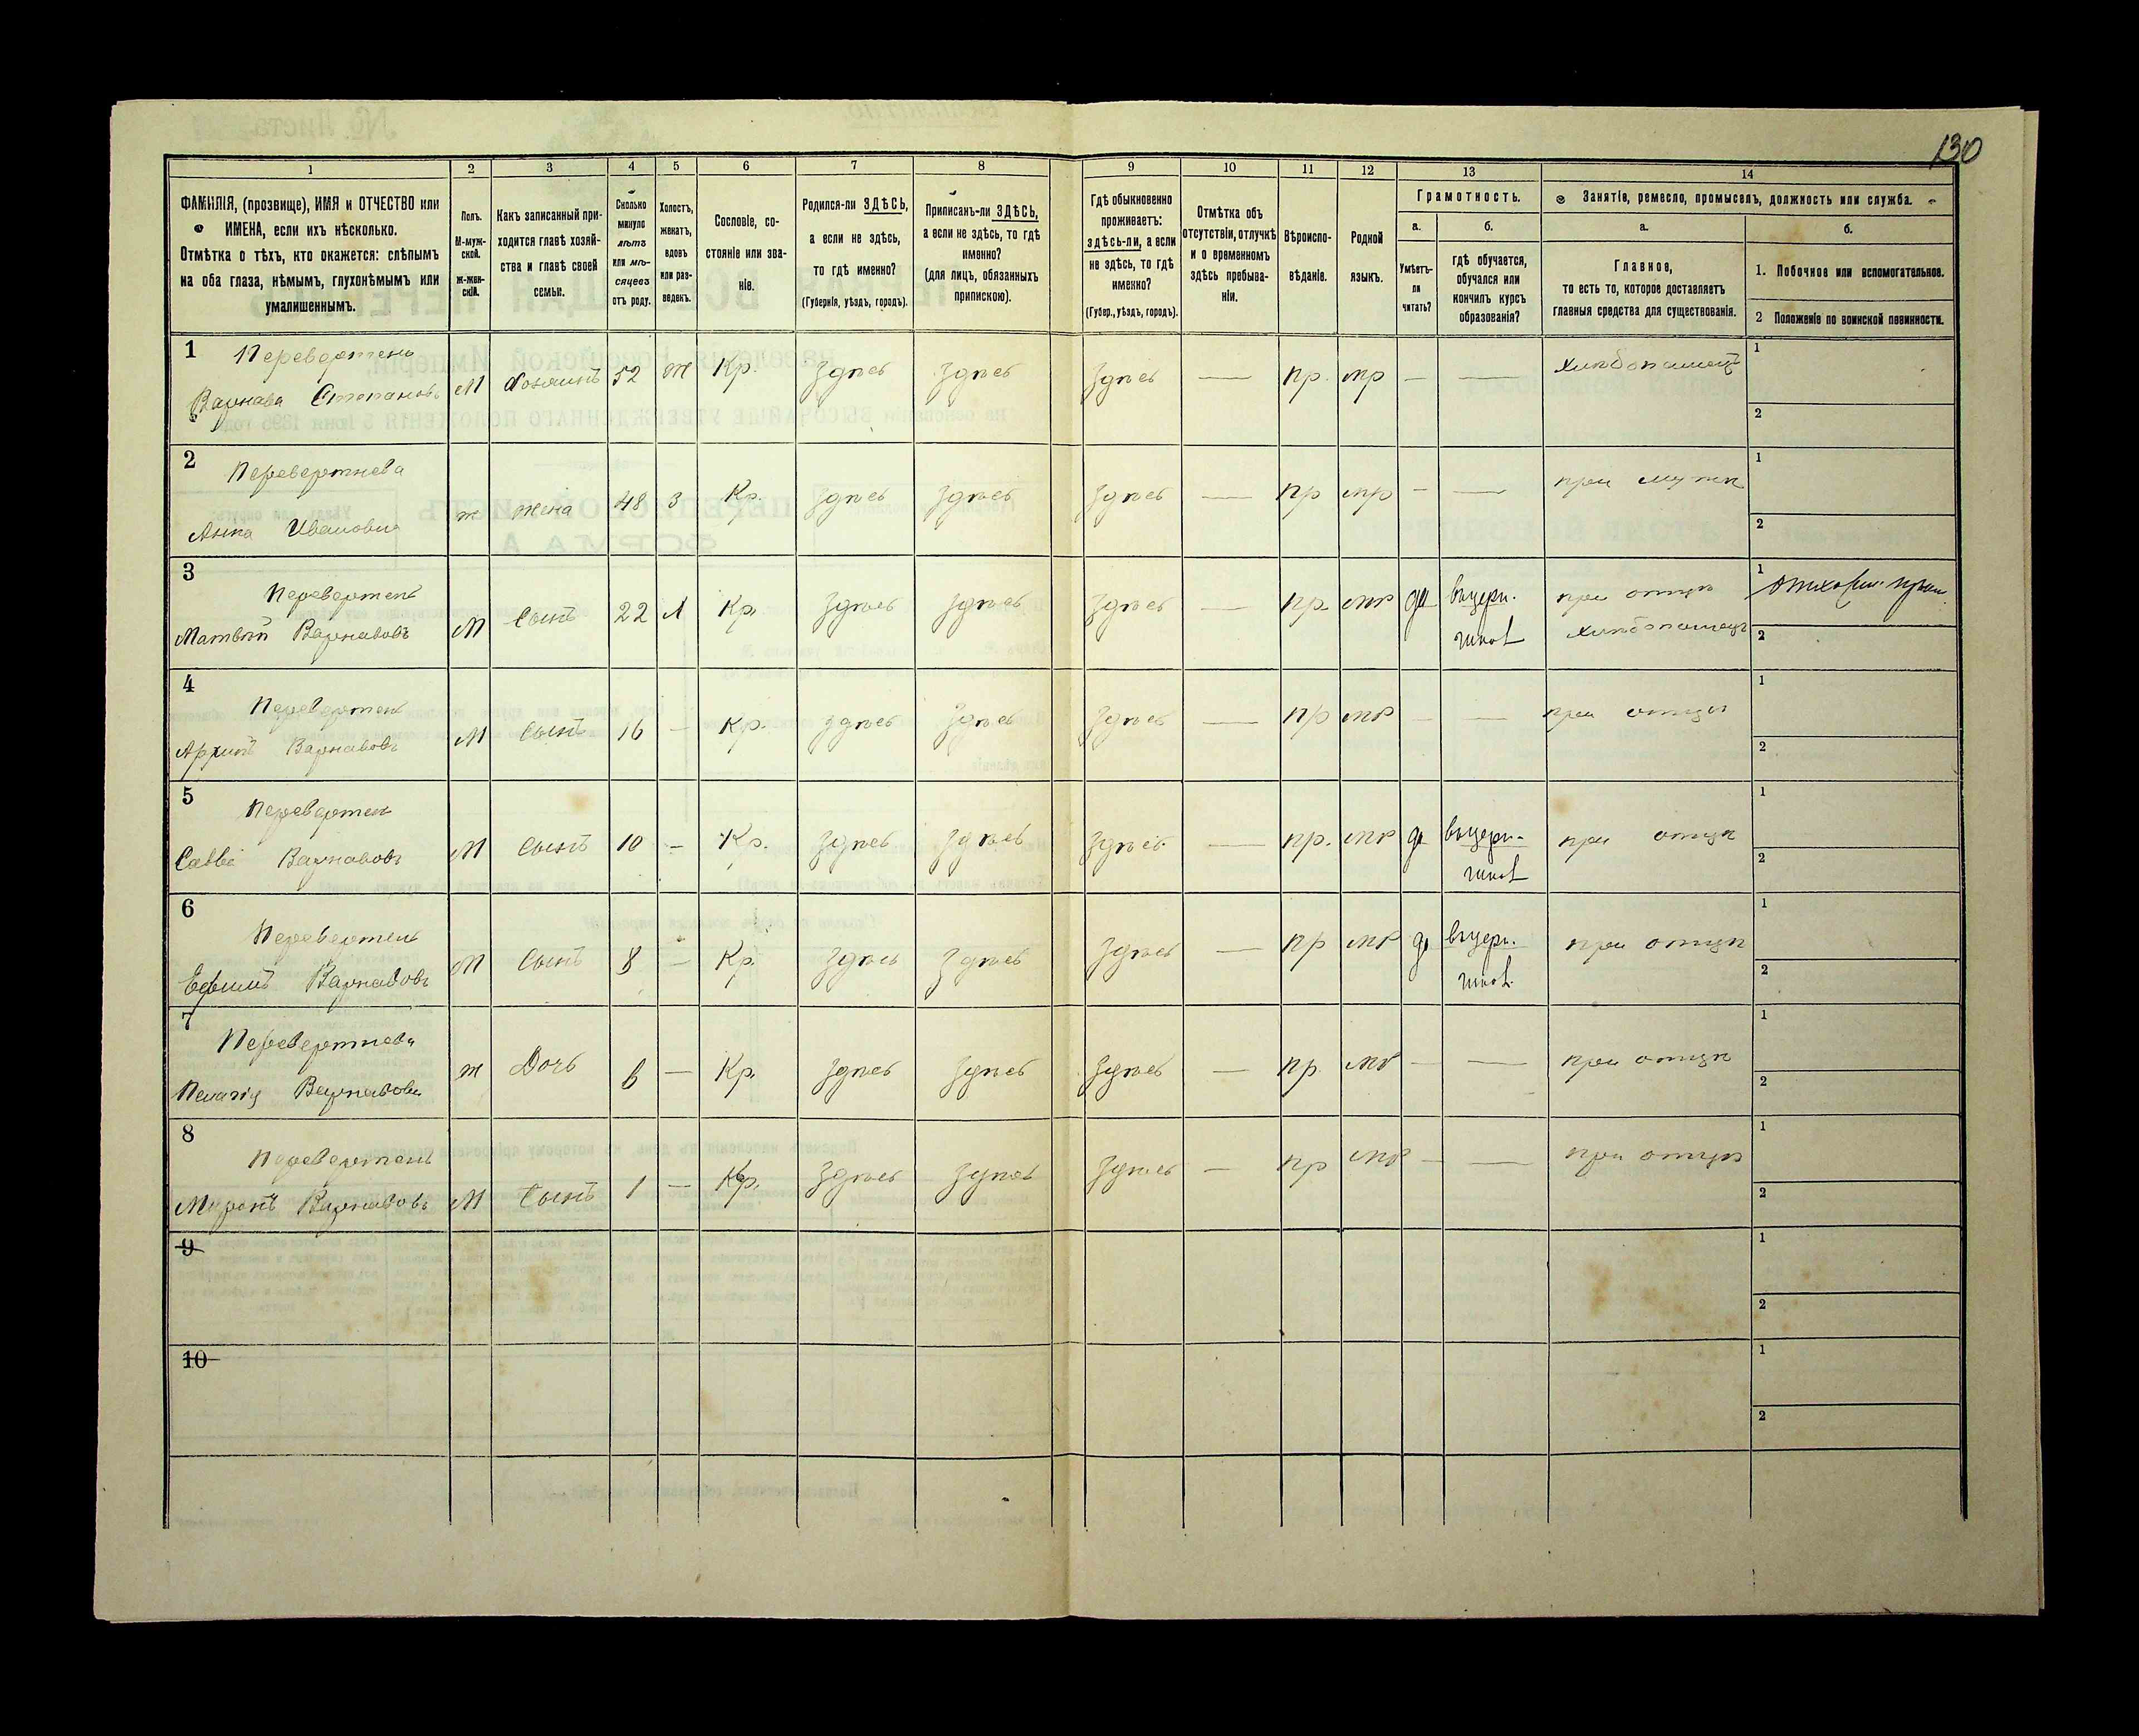 130
1
2
3
4
5
6
7
8
9
10
11
12
13
14
ФАМИЛІЯ, (прозвище), ИМЯ и ОТЧЕСТВО или
ИМЕНА, если ихъ нѣсколько.
Отмѣтка о тѣхъ, кто окажется: слѣпымъ
на оба глаза, нѣмымъ, глухонѣмымъ или
умалишеннымъ.
Полъ.
М-муж-
ской.
ж-жен-
скій.
Какъ записанный при-
ходится главѣ хозяй-
ства и главѣ своей
семьи.
Сколько
минуло
лѣтъ
или мѣ-
сяцевъ
отъ роду.
Холостъ,
женатъ,
вдовъ
или раз-
веденъ.
Сословіе, со-
стояніе или зва-
ніе.
Родился-ли ЗДѢСЬ,
а если не здѣсь,
то гдѣ именно?
(Губернія, уѣздъ, городъ).
Приписанъ-ли ЗДѢСЬ,
а если не здѣсь, то гдѣ
именно?
(для лицъ, обязанныхъ
припискою).
Гдѣ обыкновенно
проживаетъ:
здѣсь-ли, а если
не здѣсь, то гдѣ
именно?
(Губер., уѣздъ, городъ).
Отмѣтка объ
отсутствіи, отлучкѣ
и о временномъ
здѣсь пребыва-
ніи.
Вѣроиспо-
вѣданіе.
Родной
языкъ.
Грамотность.
а.
б.
Умѣетъ-
ли
читать?
гдѣ обучается,
обучался или
кончилъ курсъ
образованія?
Занятіе, ремесло, промыселъ, должность или служба.
а.
б.
Главное,
то есть то, которое доставляетъ
главныя средства для существованія.
1. Побочное или вспомогательное.
2 Положеніе по воинской повинности.
1 Перевертень
Варнава Степановъ М Хозяинъ 52 ж Кр. Здѣсь Здѣсь Здѣсь — пр. мр — — хлѣбопашецъ
1
2
2 Перевертнева
Анна Иванова ж жена 48 З Кр. Здѣсь Здѣсь Здѣсь — пр мр — — при мужѣ
1
2
3 Перевертень
Матвѣй Варнавовъ М Сынъ 22 Кр. Здѣсь Здѣсь Здѣсь — пр. мр да вцерк. при отцѣ
школ хлѣбопашецъ
1
2
4 Перевертень
Архипъ Варнавовъ М Сынъ 16 — Кр. Здѣсь Здѣсь Здѣсь — пр мр — — при отцѣ
1
2
5 Перевертень
Савва Варнавовъ М Сынъ 10 — Кр. Здѣсь Здѣсь Здѣсь — пр. мр да вцерк. при отцѣ
школ
1
2
6 Перевертень
Ефимъ Варнавовъ М Сынъ 8 — Кр. Здѣсь Здѣсь Здѣсь — пр мр да вцерк. при отцѣ
школ.
1
2
7 Перевертнева
Пелагія Варнавова ж Дочь 6 — Кр. Здѣсь Здѣсь Здѣсь — пр. мр — — при отцѣ
1
2
8 Перевертень
Миронъ Варнавовъ М Сынъ 1 — Кр. Здѣсь Здѣсь Здѣсь — пр мр — — при отцѣ
1
2
9
1
2
10
1
2